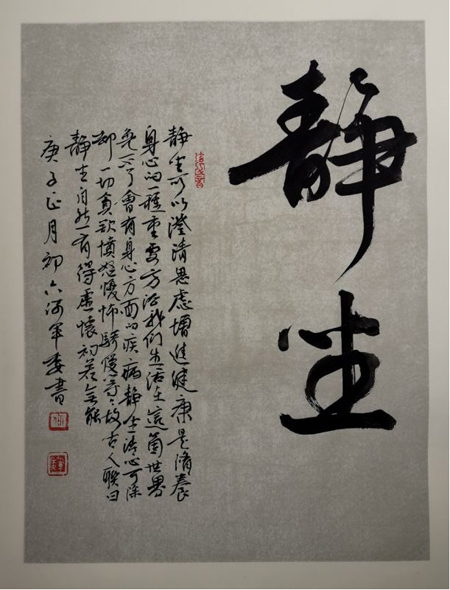 静坐
静坐可以澄清思虑增进健康是修养
身心的一种重要方法我们生活在这个世界
免不了会有身心方面的疾病静坐清心可除
却一切贪欲愤怒忧怖骄慢等故古人联曰
静坐自然有得虚怀初若无能
庚子正月初六河军委书